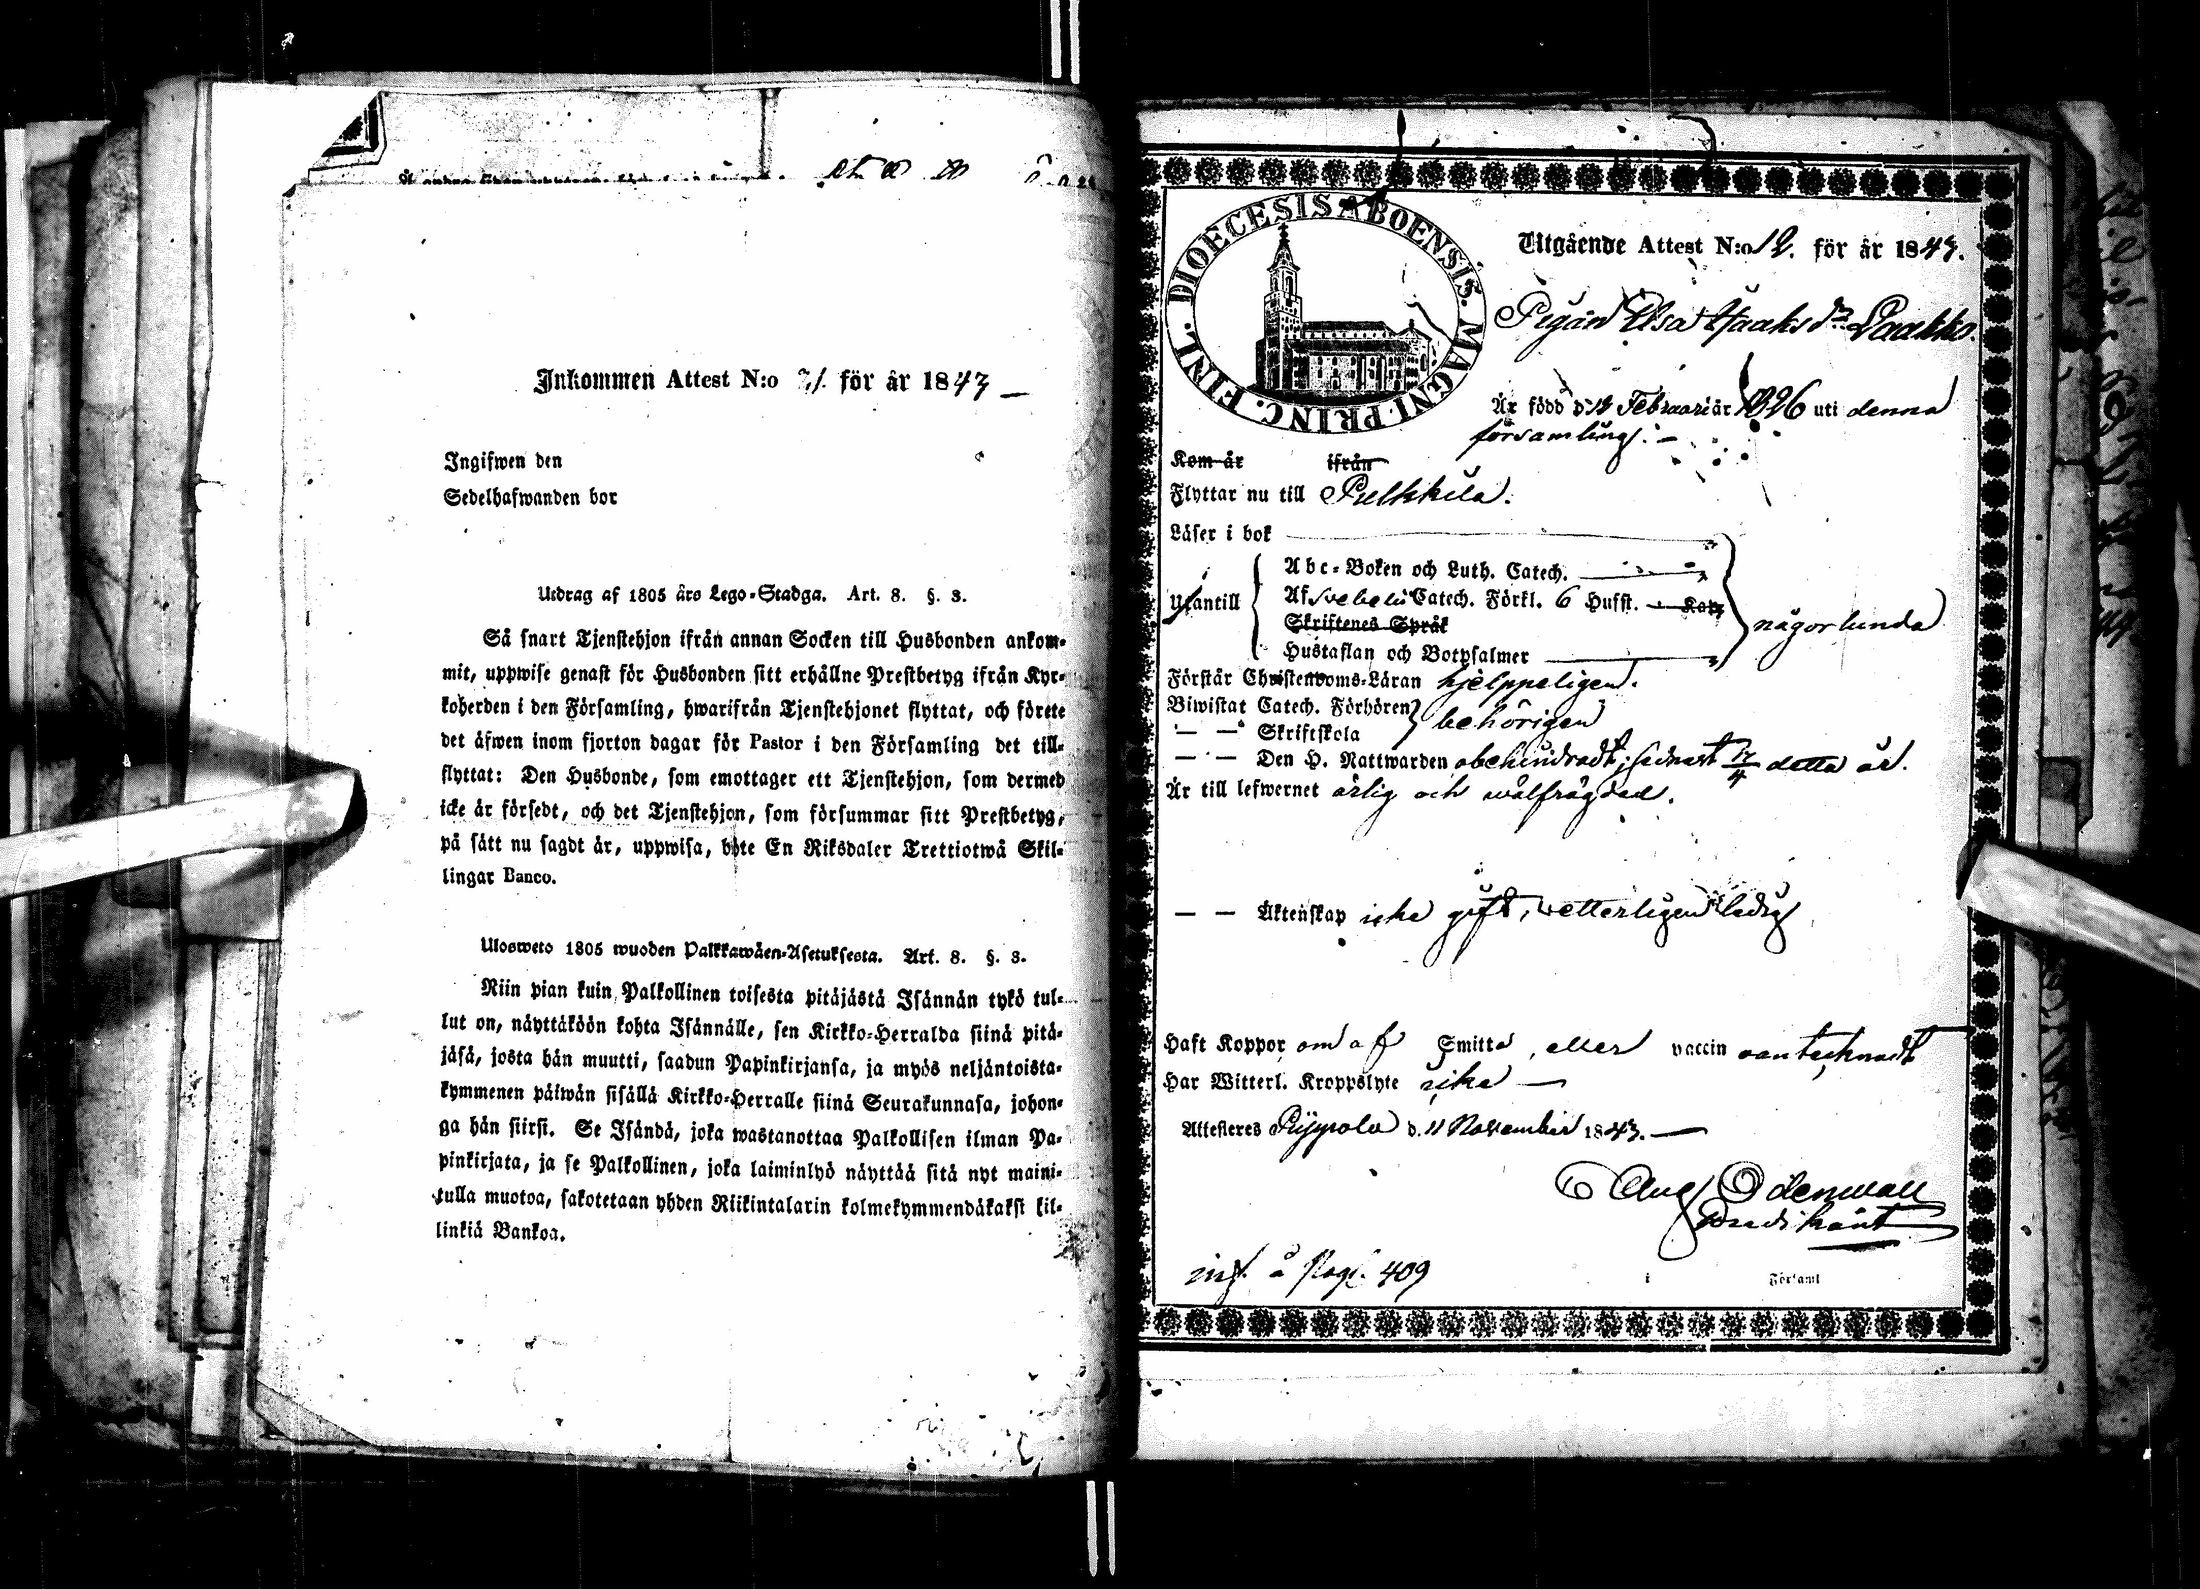 Inkommen Attest N:o 21 för år 1843
Ingifwen den
Sedelhafwanden bor
Utdrag af 1805 års Lego-Stadga. Art. 8. §. 3.
Så snart Tjenstehjon ifrån annan Socken till Husbonden ankom-
mit, uppwise genast för Husbonden sitt erhållne Prestbetyg ifrån Kyr-
koherden i den Församling, hwarifrån Tjenstehjonet flyttat, och förete
det äfwen inom fjorton dagar för Pastor i den Församling det till-
flyttat: Den Husbonde, som emottager ett Tjenstehjon, som dermed
icke är försedt, och det Tjenstehjon, som försummar sitt Prestbetyg,
på sätt nu sagdt är, uppwisa, böte En Riksdaler Trettiotwå Skil-
lingar Banco.
Ulosweto 1805 wuoden Palkkawäen-Asetuksesta. Art. 8. §. 3.
Niin pian kuin Palkollinen toisesta pitäjästä Isännän tykö tul-
lut on, näyttäköön kohta Isännälle, sen Kirkko-Herralda siinä pitä-
jäsä, josta hän muutti, saadun Papinkirjansa, ja myös neljäntoista-
kymmenen päiwän sisällä Kirkko-Herralle siinä Seurakunnasa, johon-
ga hän siirsi. Se Isändä, joka wastanottaa Palkollisen ilman Pa-
pinkirjata, ja se Palkollinen, joka laiminlyö näyttää sitä nyt maini-
tulla muotoa, sakotetaan yhden Riikintalarin kolmekymmendäkaksi kil-
linkiä Bankoa.
DIOECESIS ABOENSIS. MAGNI. PRINC. FINL.
Utgående Attest N:o 12. för år 1843.
Pigan Elsa Isaks dr Laakko.
Är född d. 12 Februari år 1826 uti denna
församling.
Kom år ifrån
Flyttar nu till Pulkkila.
Läser i bok
Utantill
Abc-Boken och Luth. Catech.
Af Svebelii Catech. Förkl. 6 Hufst.
Skriftenes Språk
Hustaflan och Botpsalmer
någorlunda
Förstår Christendoms-Läran hjelppeligen.
Biwistat Catech. Förhören
— — Skriftskola
behörigen
— — Den H. Nattwarden obehindradt, sednast 17/4 detta år.
Är till lefwernet ärlig och wälfrägdad.
— — Äktenskap icke gift, wetterligen ledig
Haft Koppor om af Smitta, eller vaccin oantecknadt
Har Witterl. Kroppslyte icke
Attesteras d. 11 November 1843.
Aug Odenwall
Predikant
inf. å Pag. 409
i Församl